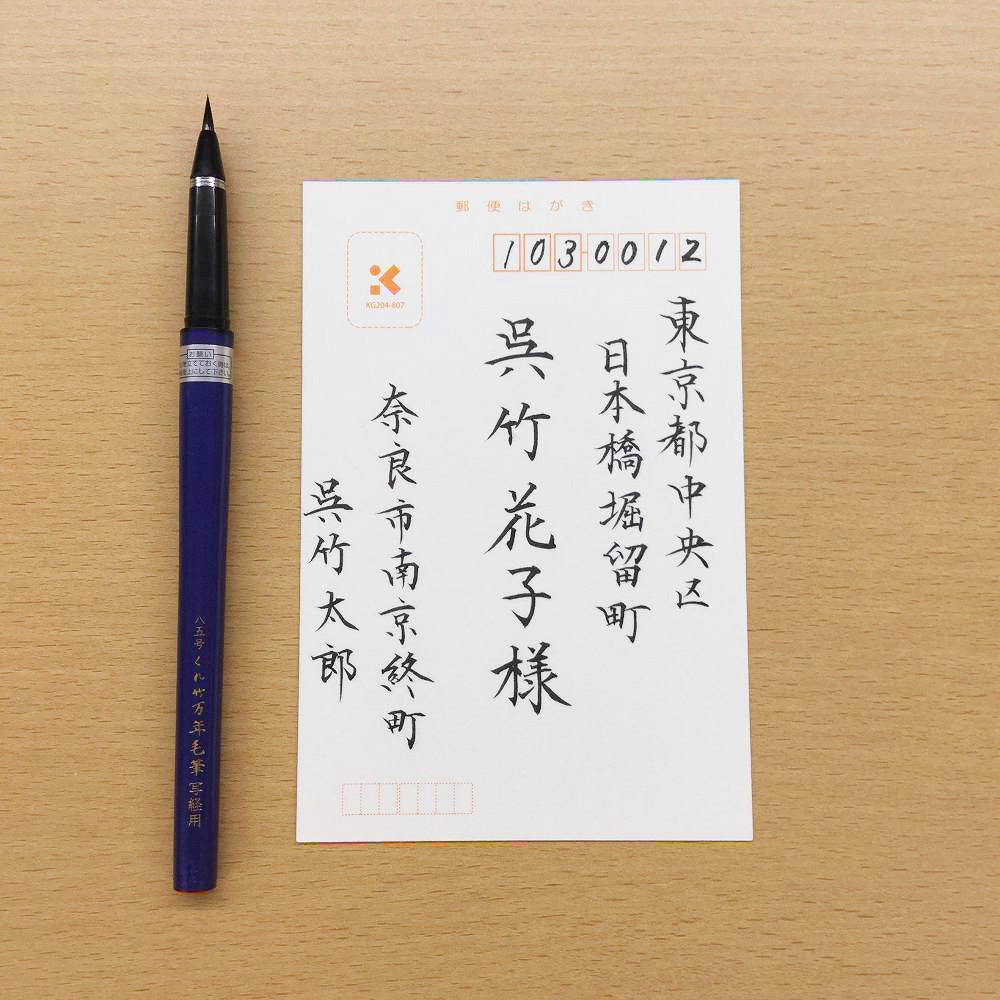 郵便はがき
103-0012
KG204-807
東京都中央区
日本橋堀留町
呉竹花子様
奈良市南京終町
呉竹太郎
お願い
八五号くれ竹万年毛筆写経用